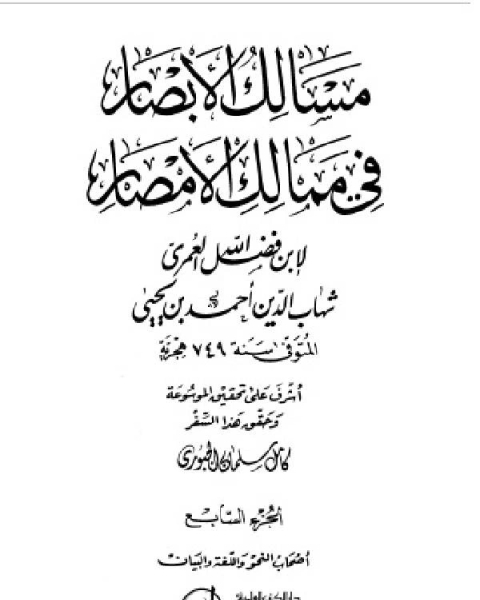 مَسَالِكُ الأَبْصَار
فِي مَمَالِكِ الأَمْصَار
لابن فضل الله العمري
شهاب الدين أحمد بن يحيى
المتوفى سنة ٧٤٩ هجرية
أشرف على تحقيق الموسوعة
وحقق هذا السفر
كامل سلمان الجبوري
الجزء السابع
أصحاب النحو واللغة والبيان
دار الكتب العلمية